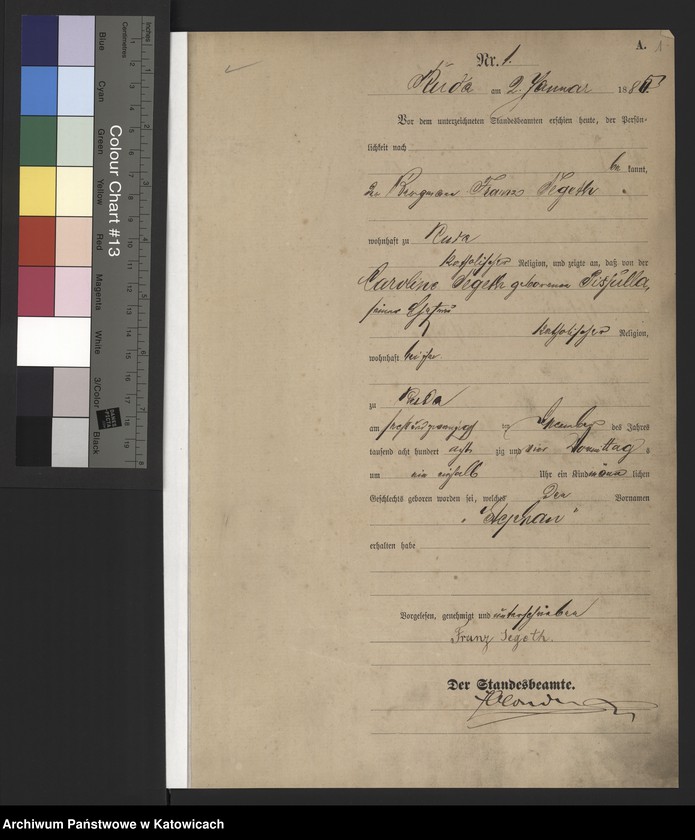 A. 1
Nr. 1.
Ruda am 2. Januar 1885.
Vor dem unterzeichneten Standesbeamten erschien heute, der Persön-
lichkeit nach
be kannt,
der Bergmann Franz Segeth
wohnhaft zu Ruda
katholischer Religion, und zeigte an, daß von der
Caroline Segeth geborenen
seiner Ehefrau
katholischer Religion,
wohnhaft bei ihm
zu Ruda
am sechsundzwanzigsten Dezember des Jahres
tausend acht hundert acht zig und vier Vormittag s
um ein einhalb Uhr ein Kind männ lichen
Geschlechts geboren worden sei, welches den Vornamen
"Stephan"
erhalten habe
Vorgelesen, genehmigt und unterschrieben
Franz Segeth.
Der Standesbeamte.
Inches
Centimetres
Colour Chart #13
Blue
Cyan
Green
Yellow
Red
Magenta
White
3/Color
Black
DANES
PICTA
Archiwum Państwowe w Katowicach